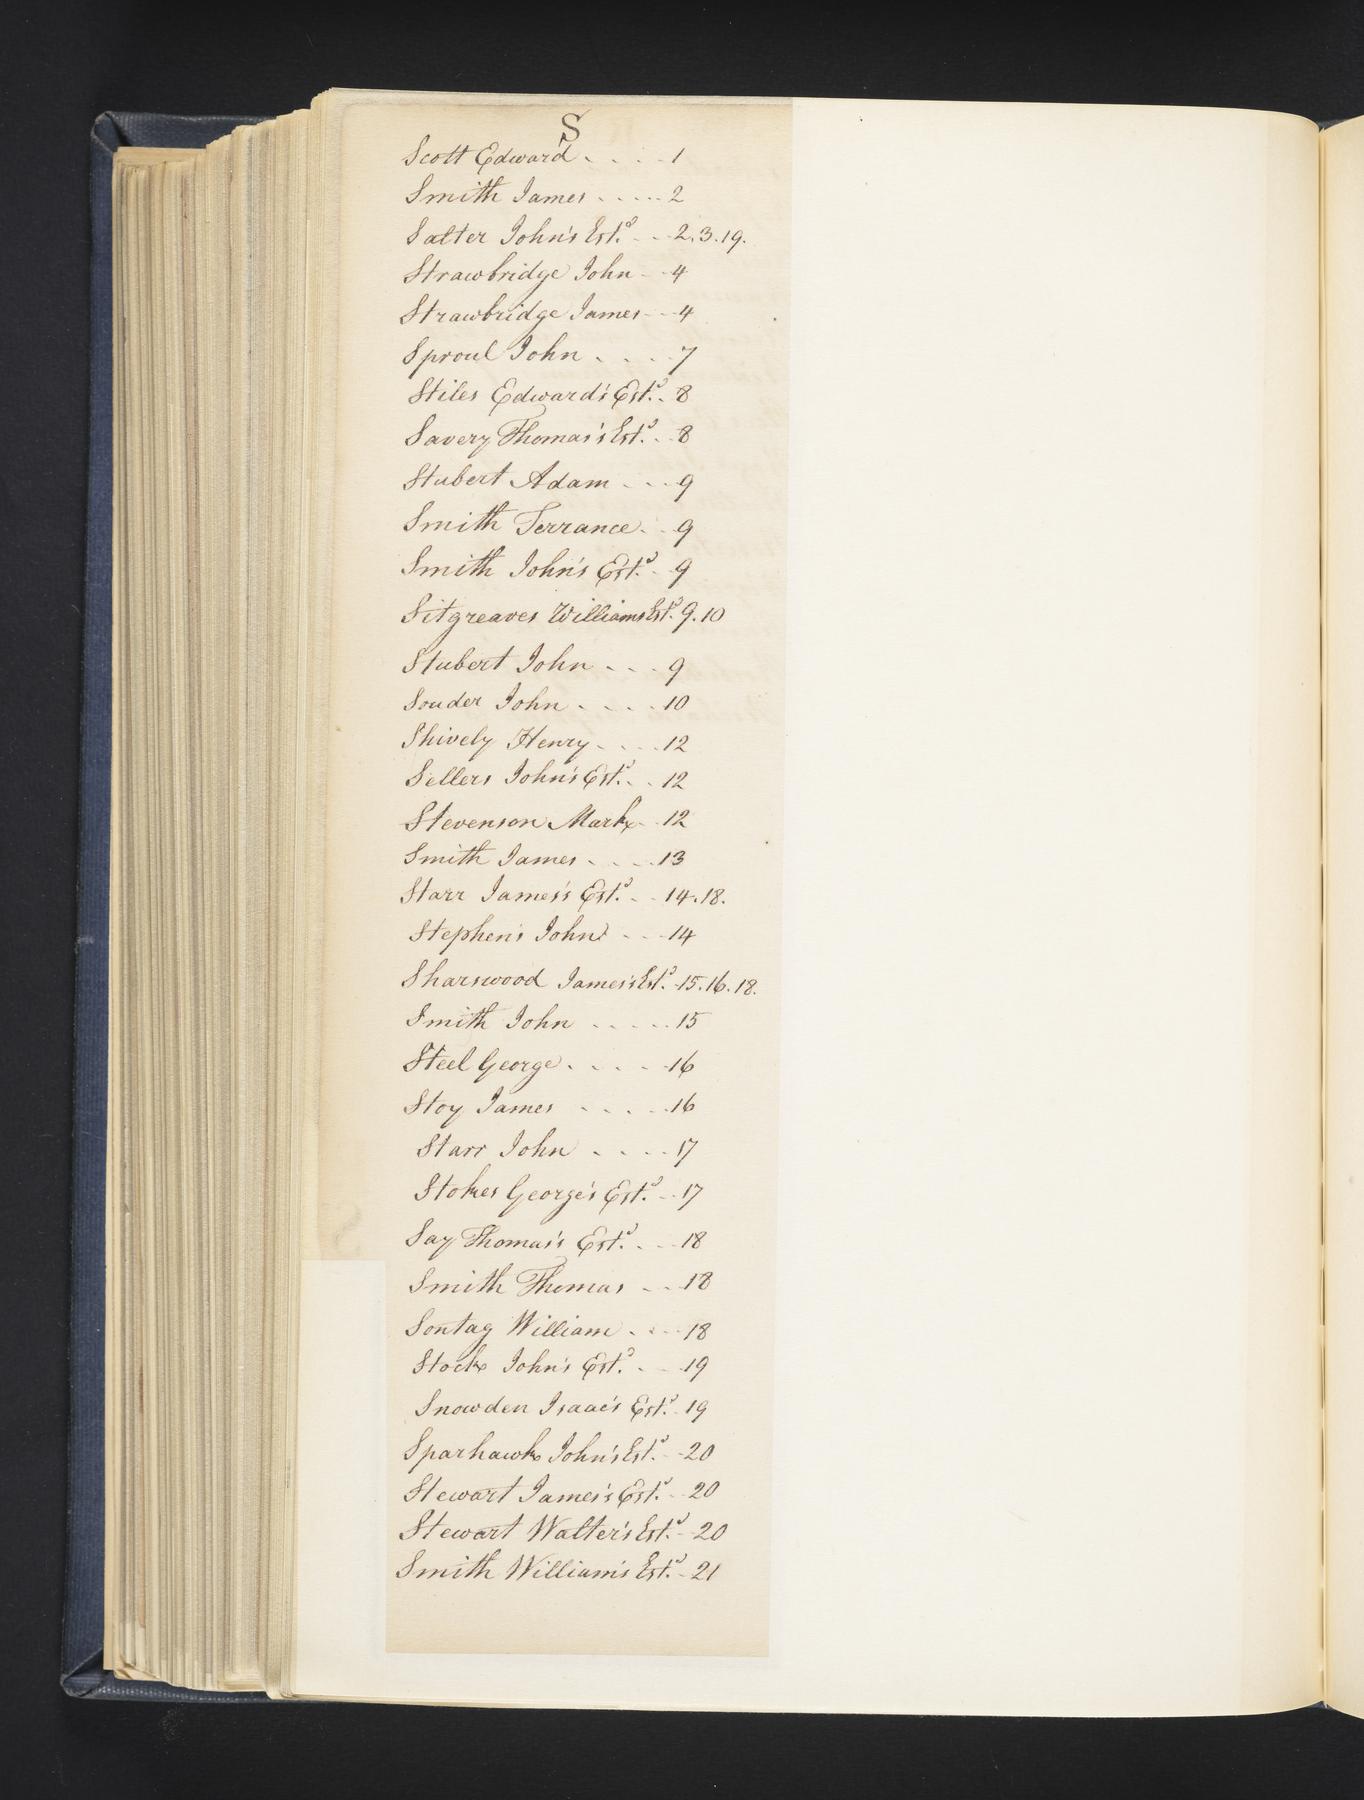 S
Scott Edward . . . . 1
Smith James . . . . . 2
Salter John's Est.ᵉ . . . 2. 3. 19.
Strawbridge John . . 4
Strawbridge James . . 4
Sproul John . . . . 7
Stiles Edward's Est.ᵉ . 8
Savery Thomas's Est.ᵉ . . 8
Stubert Adam . . . 9
Smith Terrance . . 9
Smith John's Est.ᵉ . 9
Sitgreaves Williams Est.ᵉ 9. 10
Stubert John . . . 9
Souder John . . . . 10
Shively Henry . . . . 12
Sellers John's Est.ᵉ . . 12
Stevenson Mark . . 12
Smith James . . . . 13
Starr James's Est.ᵉ . . 14. 18.
Stephens John . . . 14
Sharswood James's Est.ᵉ . 15. 16. 18.
Smith John . . . . . 15
Steel George . . . . . 16
Stoy James . . . . . 16
Starr John . . . . 17
Stokes George's Est.ᵉ . . 17
Say Thomas's Est.ᵉ . . . 18
Smith Thomas . . . 18
Sontag William . . . . 18
Stock John's Est.ᵉ . . . 19
Snowden Isaac's Est.ᵉ . 19
Sparhawk John's Est.ᵉ . . 20
Stewart James's Est.ᵉ . . 20
Stewart Walter's Est.ᵉ . 20
Smith William's Est.ᵉ . 21